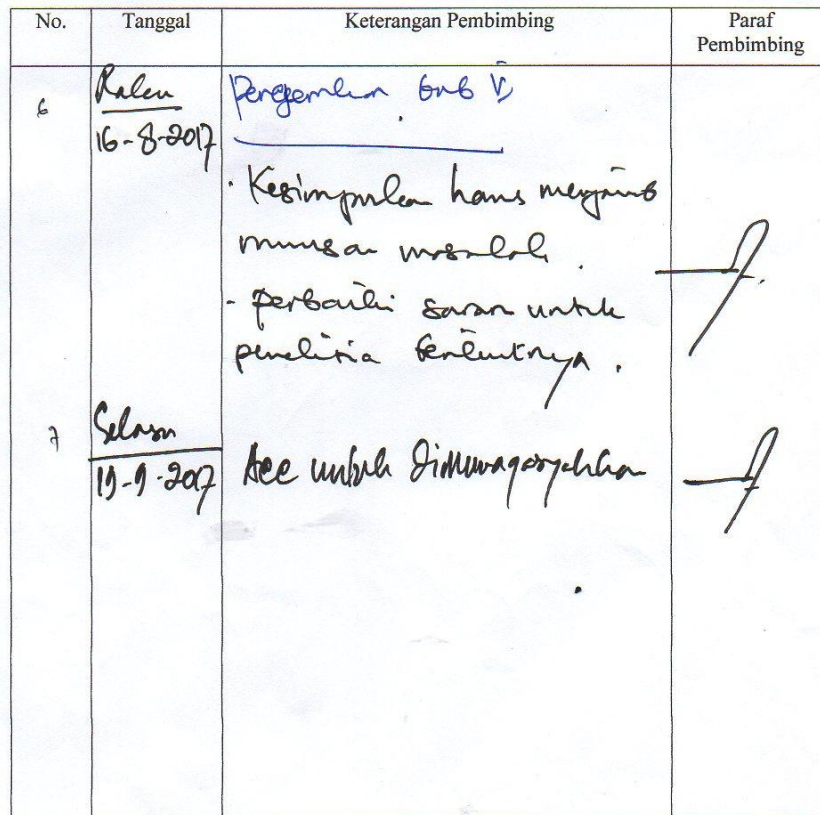 No. Tanggal Keterangan Pembimbing Paraf Pembimbing
6 Rabu
16-8-2017
bab V
- Kesimpulan harus menjawab
rumusan masalah.
- Perbaiki saran untuk
penelitia berikutnya.
7 Selasa
19-9-2017 Acc untuk dimunaqosyahkan